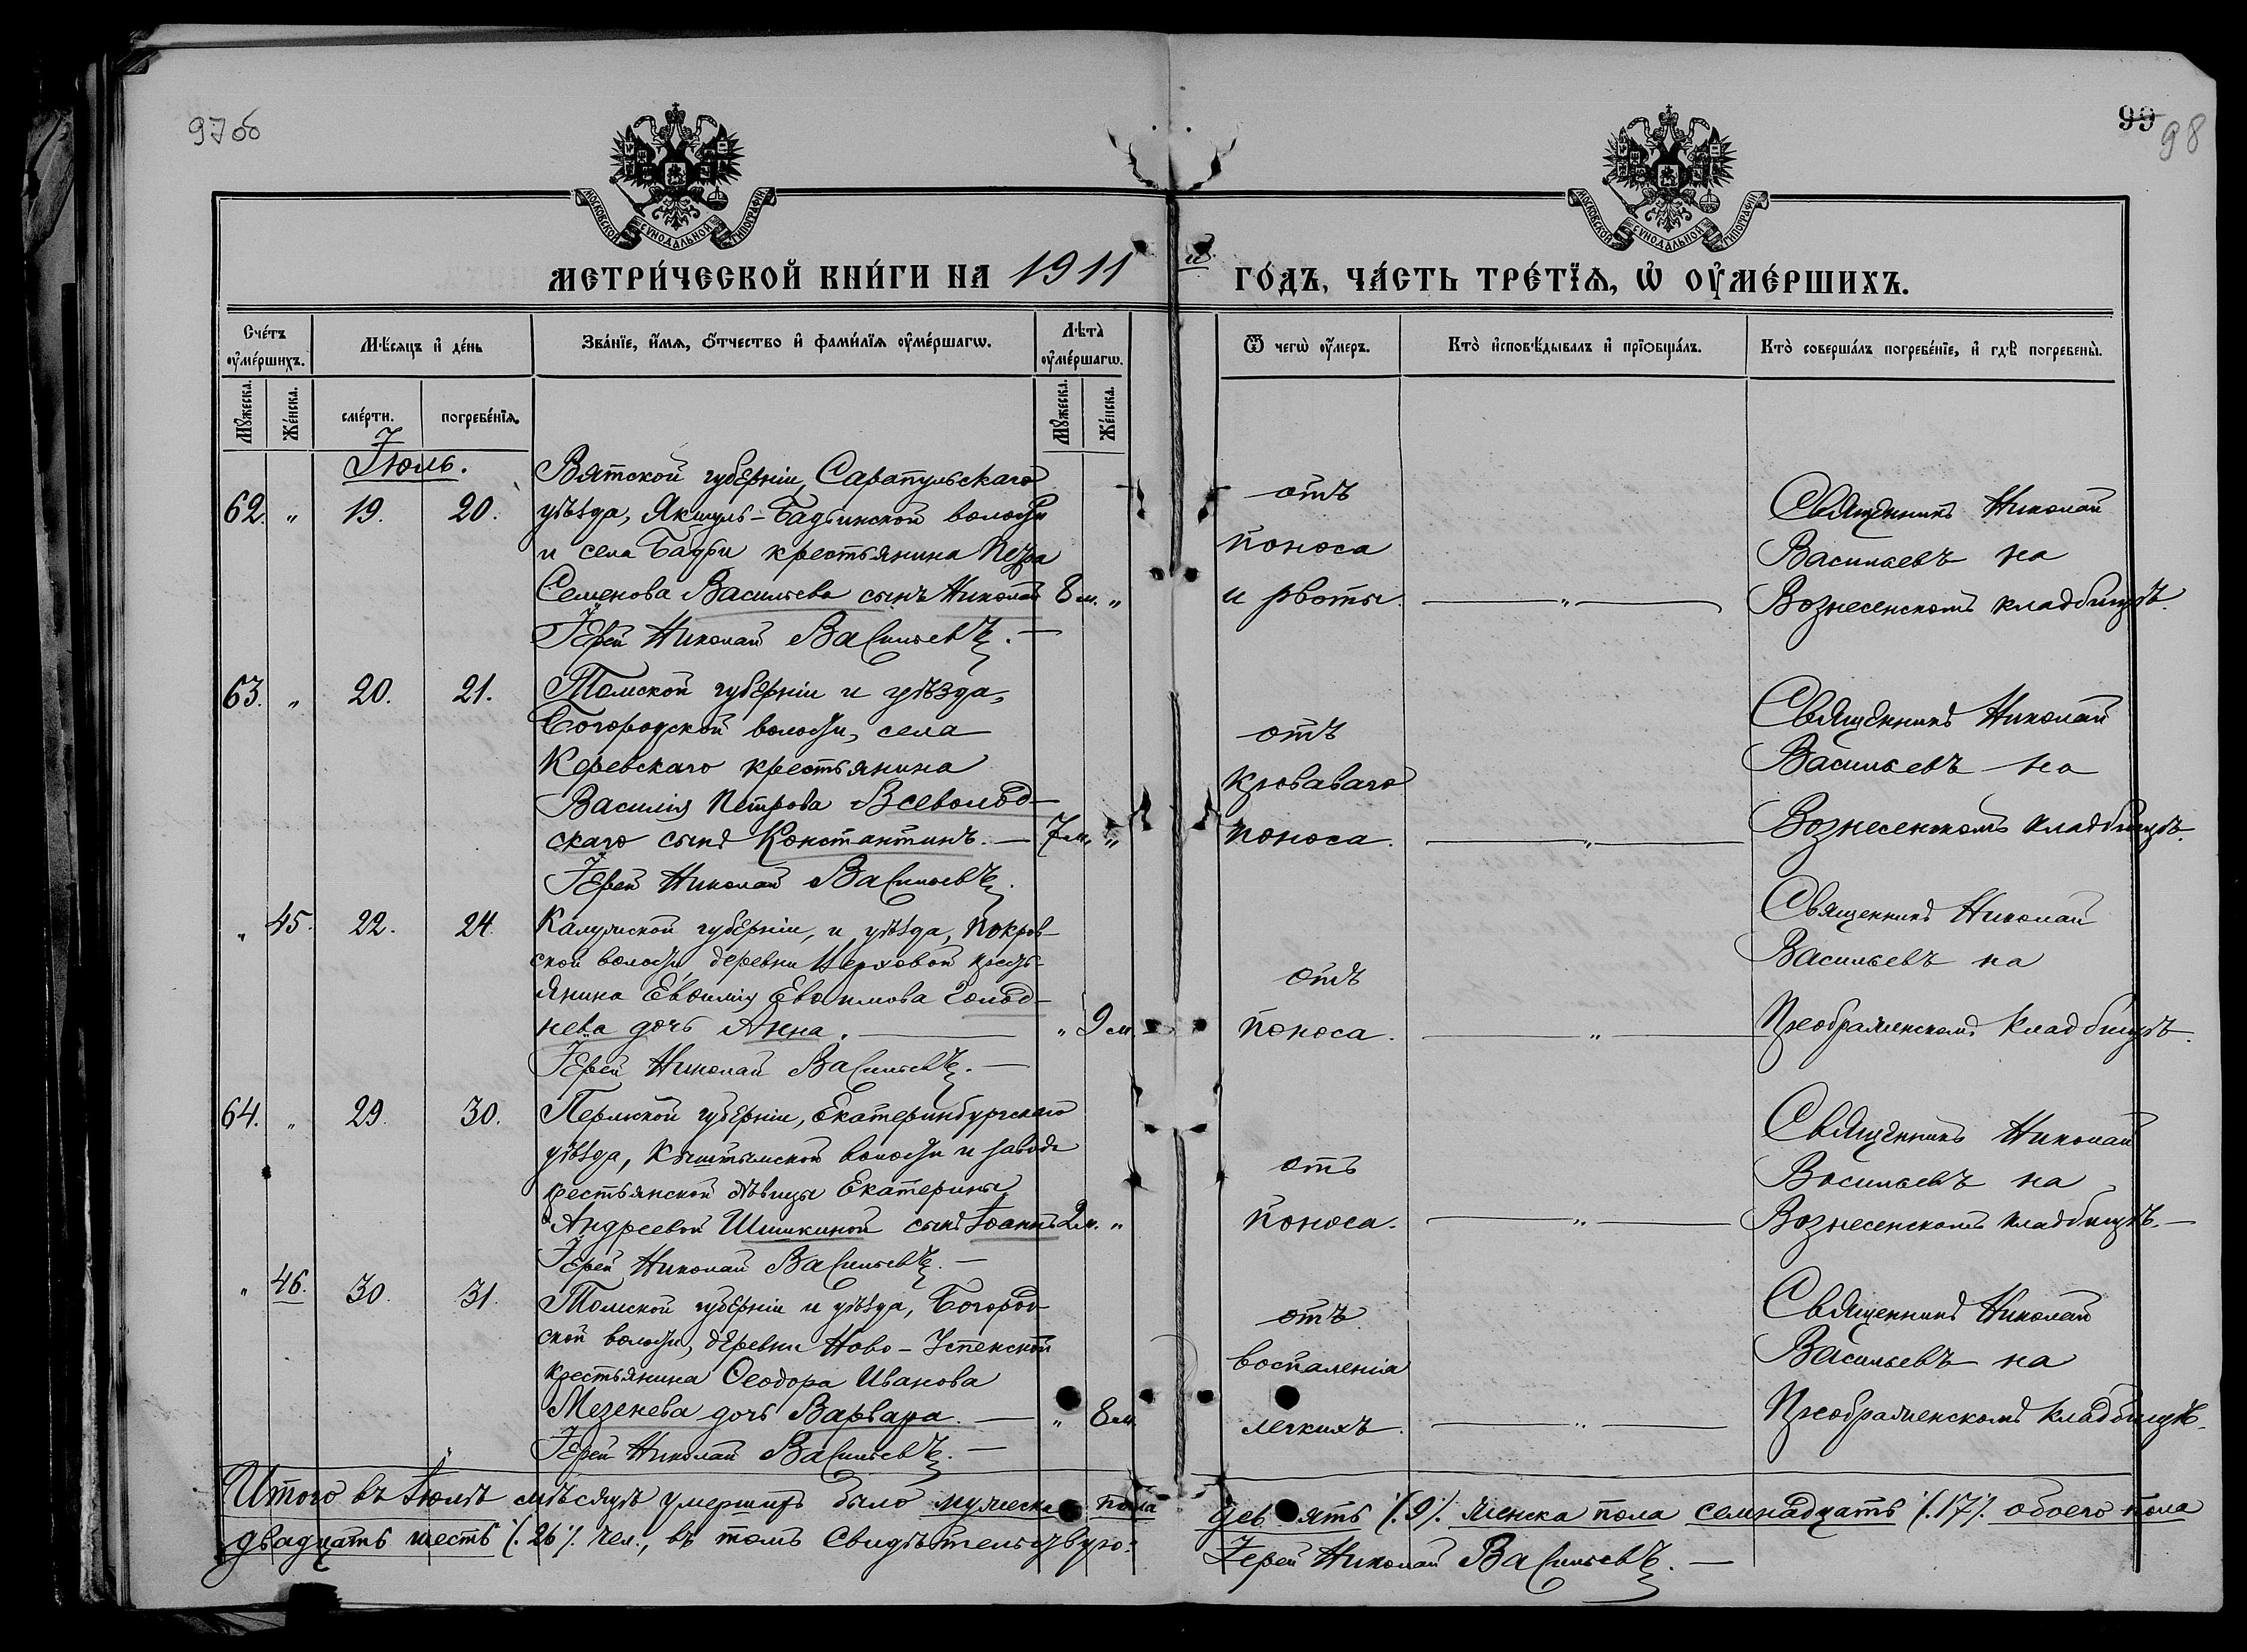 97об
99
98
МОСКОВСКОЙ СѴНОДАЛЬНОЙ ТИПОГРАФІИ
МОСКОВСКОЙ СѴНОДАЛЬНОЙ ТИПОГРАФІИ
МЕТРИ́ЧЕСКОЙ КНИ́ГИ НА 1911 й ГО́ДЪ, ЧА́СТЬ ТРЕ́ТЇѦ, Ѡ҆ ОУ҆МЕ́РШИХЪ.
Сче́тъ оу҆ме́ршихъ.
Мѣ́сяцъ и҆ де́нь
Зва́нїе, и҆́мѧ, ѻ҆́тчество и҆ фами́лїѧ оу҆ме́ршагѡ.
Лѣта̀ оу҆ме́ршагѡ.
Ѿ чегѡ̀ оу҆́меръ.
Кто̀ и҆сповѣ́дывалъ и҆ прїѡбща́лъ.
Кто̀ соверша́лъ погребе́нїе, и҆ гдѣ̀ погребены̀.
Мꙋ́жеска.
Же́нска.
сме́рти.
погребе́нїѧ.
Мꙋ́жеска.
Же́нска.
Іюль.
62. " 19. 20.
Вятской губерніи, Сарапульскаго
уѣзда, Якшуль-Бадьинской волости
и села Бадьи крестьянина Петра
Семенова Васильева сынъ Николай 8 м. "
Іерей Николай Васильевъ. —
отъ
поноса
и рвоты.
— " —
Священникъ Николай
Васильевъ на
Вознесенскомъ кладбищѣ.
63. " 20. 21.
Томской губерніи и уѣзда,
Богородской волости, села
Керевскаго крестьянина
Василія Петрова Всеволод-
скаго сынъ Константинъ. — 7 м. "
Іерей Николай Васильевъ.
отъ
кроваваго
поноса.
— " —
Священникъ Николай
Васильевъ на
Вознесенскомъ кладбищѣ.
" 45. 22. 24.
Калужской губерніи, и уѣзда, Покров-
ской волости, деревни Верховой кресть-
янина Евѳимія Евѳимова Голод-
нева дочь Анна. — " 9 м.
Іерей Николай Васильевъ. —
отъ
поноса.
— " —
Священникъ Николай
Васильевъ на
Преображенскомъ кладбищѣ.
64. " 29. 30.
Пермской губерніи, Екатеринбургскаго
уѣзда, Кыштымской волости и завода
крестьянской дѣвицы Екатерины
Андреевой Шишкиной сынъ Іоаннъ 2 м. "
Іерей Николай Васильевъ. —
отъ
поноса.
— " —
Священникъ Николай
Васильевъ на
Вознесенскомъ кладбищѣ. —
" 46. 30. 31.
Томской губерніи и уѣзда, Богород-
ской волости, деревни Ново-Успенской
крестьянина Ѳеодора Иванова
Мезенева дочь Варвара. — " 8 м.
Іерей Николай Васильевъ. —
отъ
воспаленія
легкихъ.
— " —
Священникъ Николай
Васильевъ на
Преображенскомъ кладбищѣ.
Итого въ Іюлѣ мѣсяцѣ умершихъ было мужеска пола девять /.9/. женска пола семнадцать /.17/. обоего пола
двадцать шесть /.26/. чел., въ томъ свидѣтельствую: Іерей Николай Васильевъ. —